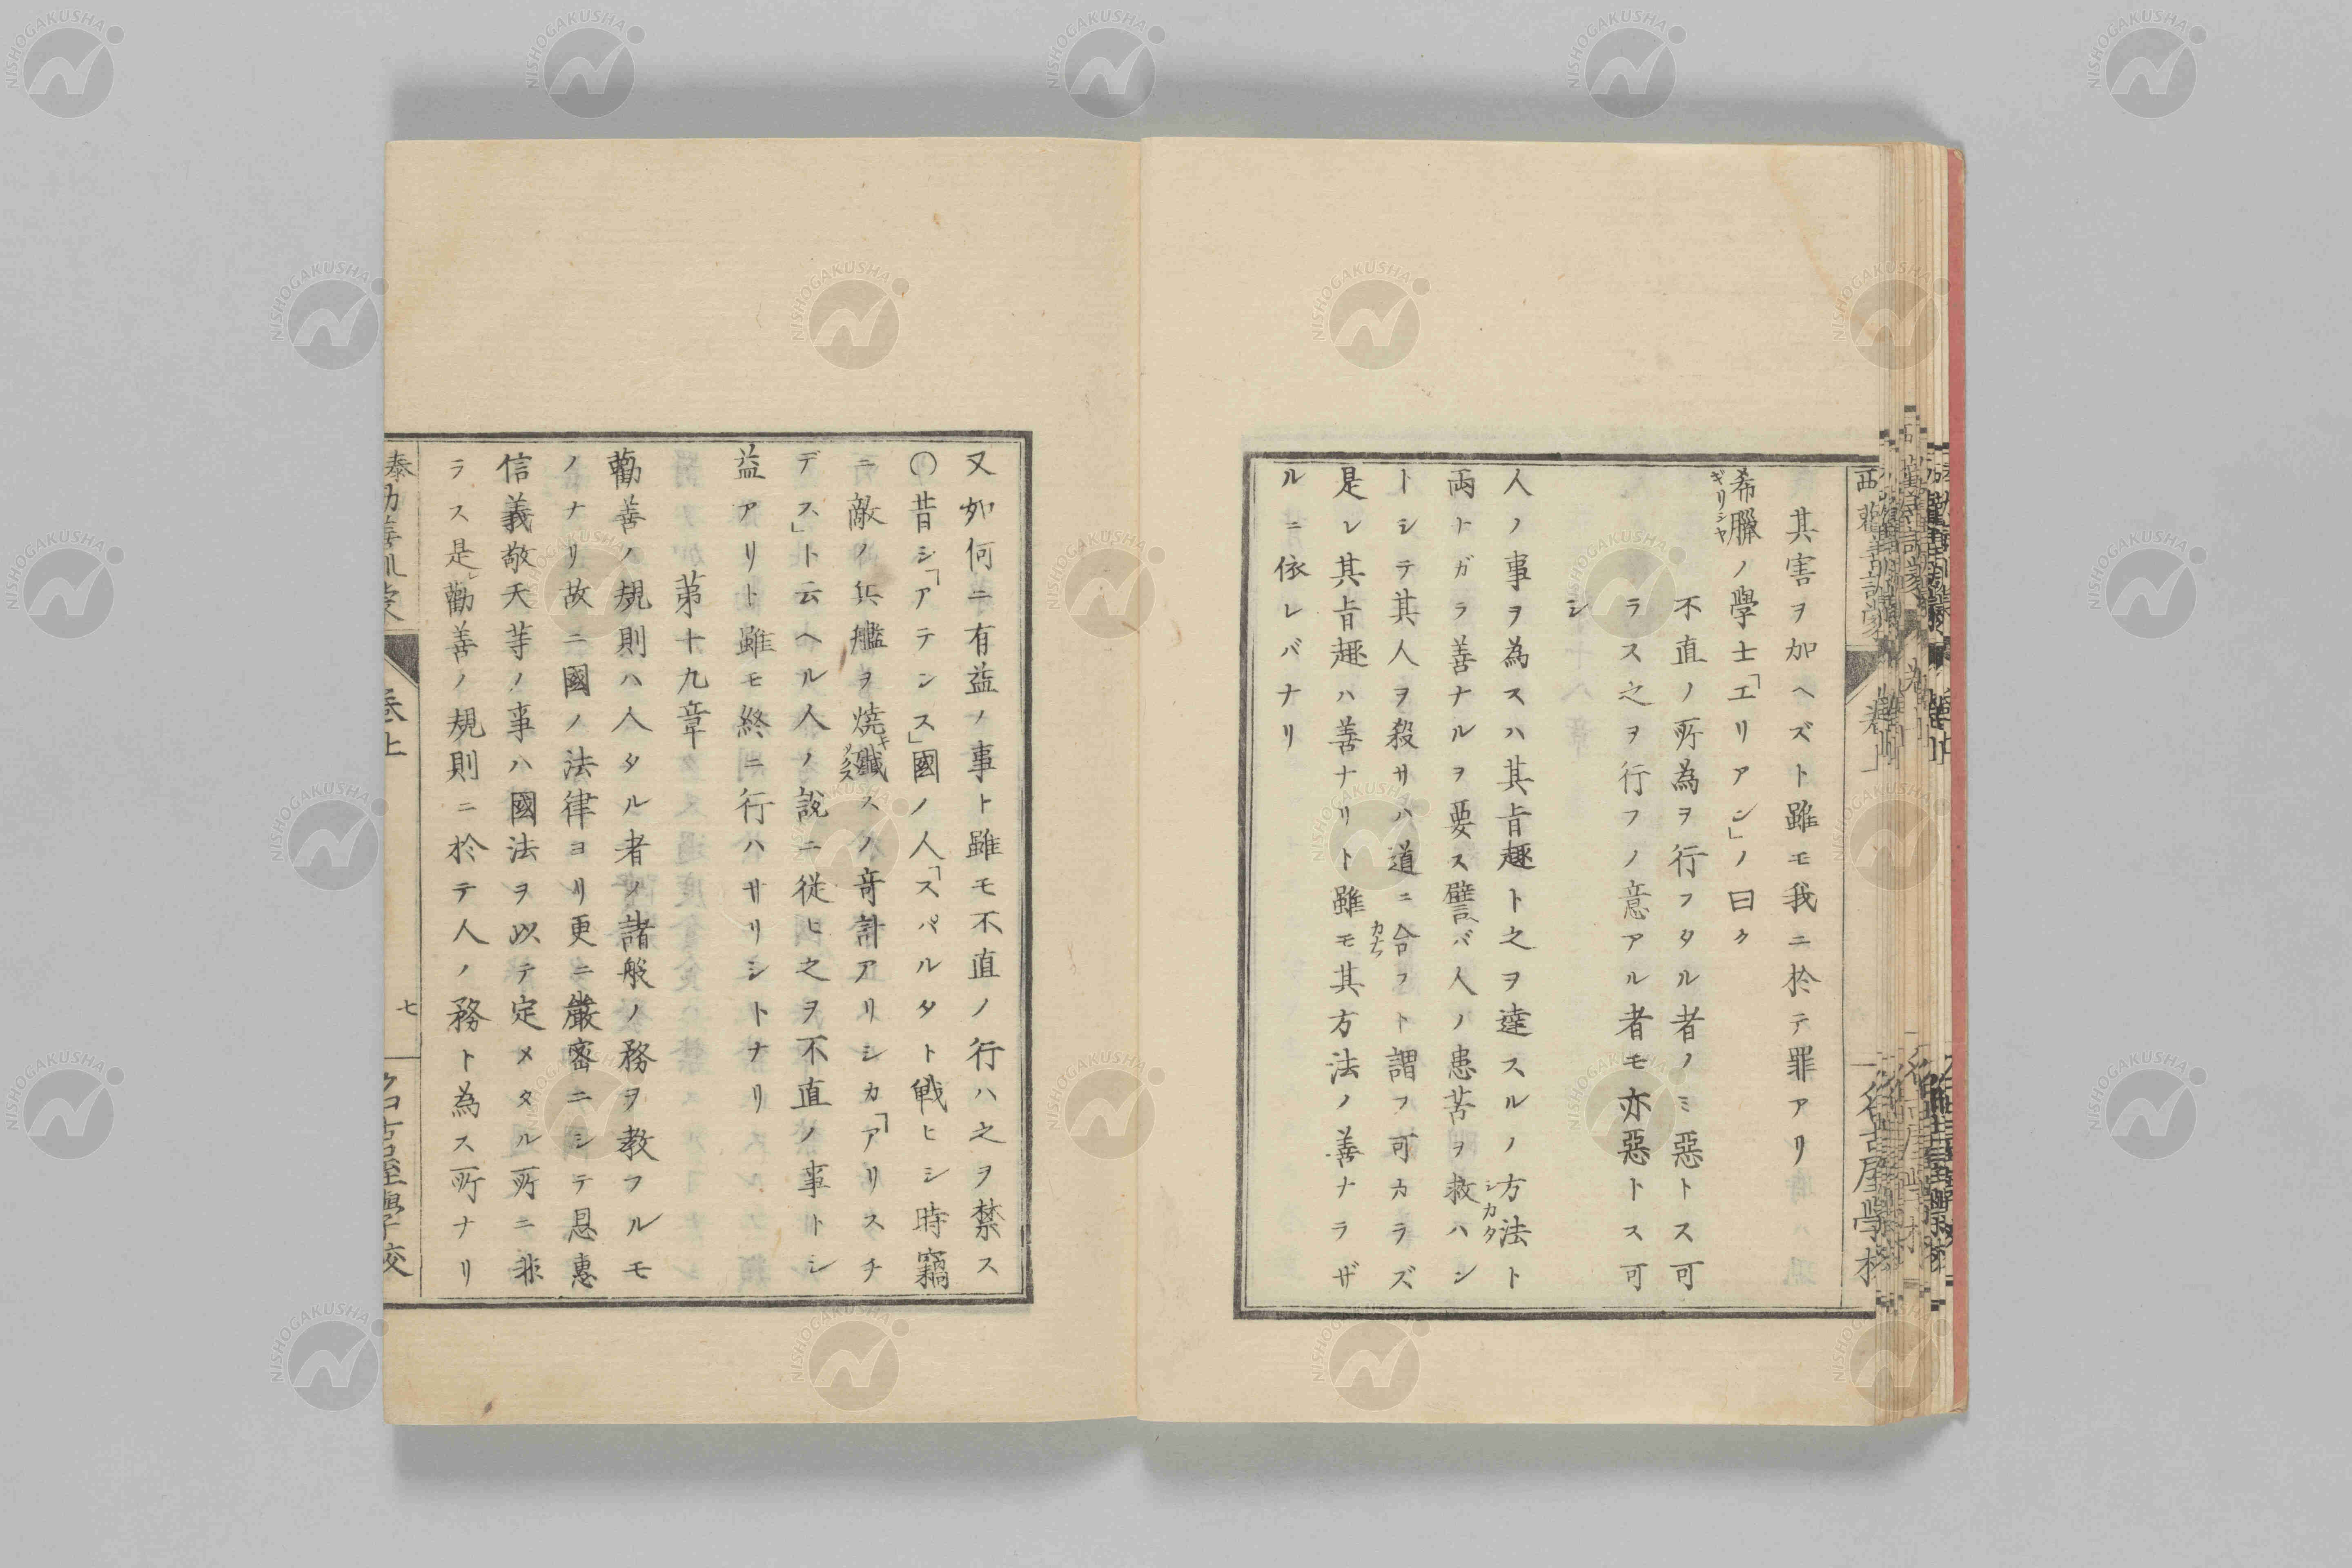 其害ヲ加ヘズト雖モ我ニ於テ罪アリ
希臘ノ學士「エリアン」ノ曰ク
ギリシヤ
不直ノ所為ヲ行フタル者ノミ惡トス可
ラス之ヲ行フノ意アル者モ亦惡トス可
シ
人ノ事ヲ為スハ其旨趣ト之ヲ達スルノ方法ト
シカタ
兩トガラ善ナルヲ要ス譬バ人ノ患苦ヲ救ハン
トシテ其人ヲ殺サハ道ニ合フト謂フ可カラズ
カナ
是レ其旨趣ハ善ナリト雖モ其方法ノ善ナラザ
ルニ依レバナリ
西
勸善訓蒙
卷上
名古屋學校
又如何ニ有益ノ事ト雖モ不直ノ行ハ之ヲ禁ス
〇昔シ「アテンス」國ノ人「スパルタト戰ヒシ時竊
ニ敵ノ兵艦ヲ燒殲スノ奇計アリシカ「アリスチ
デス」ト云ヘル人ノ說ニ從ヒ之ヲ不直ノ事トシ
益アリト雖モ終ニ行ハサリシトナリ
第十九章
勸善ノ規則ハ人タル者ノ諸般ノ務ヲ教フルモ
ノナリ故ニ國ノ法律ヨリ更ニ嚴密ニシテ恩惠
信義敬天等ノ事ハ國法ヲ以テ定メタル所ニ非
ラス是レ勸善ノ規則ニ於テ人ノ務ト為ス所ナリ
泰
勸善訓蒙
卷上
七
名古屋學校
NISHOGAKUSHA